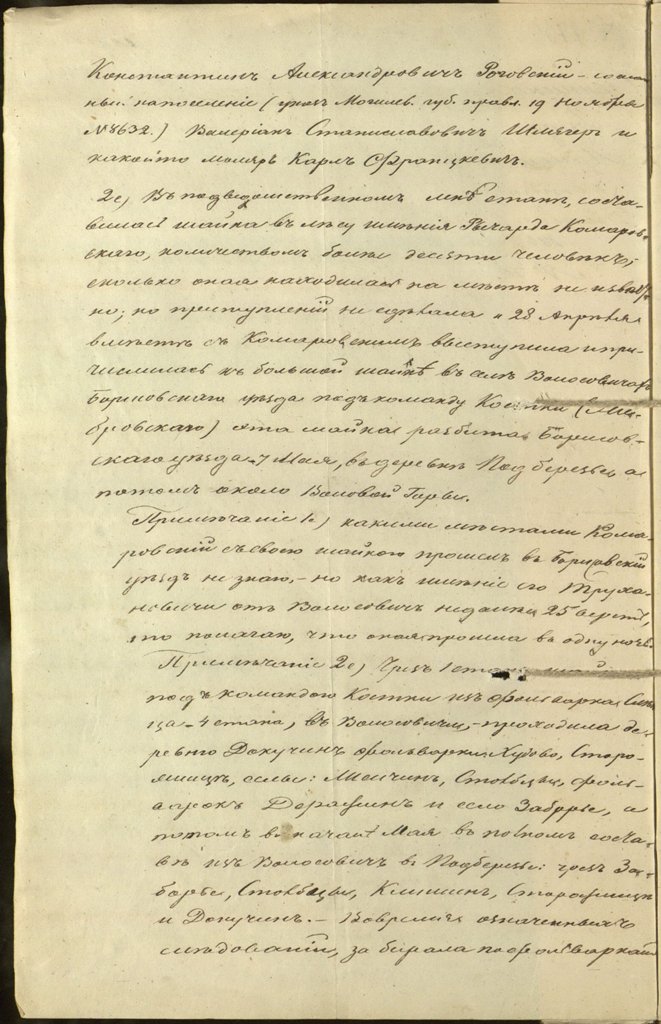 Константинъ Александровичъ Роговскій – сослан
ный на поселеніе (указъ Могилев. губ. правл. 19 Ноября
№ 8632.) Валеріанъ Станиславовичъ Шлягеръ и
какой то маляръ Карлъ Францкевичъ.
2е) Въ подведомственномъ мнѣ станѣ, соста-
вилась шайка въ лѣсу имѣнія Рычарда Комаров-
скаго, количествомъ болѣе десяти человѣкъ;
сколько оная находилась на мѣстѣ не извѣст
но; но преступленій не сдѣлала и 28 Апрѣля
вмѣстѣ съ Комаровскимъ выступила и при-
числилась къ большой шайкѣ въ селѣ Волосовичахъ
Борисовскаго уѣзда подъ команду Костки
бровскаго) эта шайка разбита Борисов-
скаго уѣзда 7 Мая, въ деревнѣ Подберезье, а
потомъ около Воловой Горы.
Примѣчаніе 1е) какими мѣстами Кома-
ровскій съ своею шайкою прошелъ въ Борисовскій
уѣздъ не знаю, – но какъ имѣніе его Труха-
новичи отъ Волосовичъ не далѣе 25 верстъ,
то полагаю, что оная прошла въ одну ночь.
Примѣчаніе 2е) Чрезъ 1 станъ
подъ командою Костки изъ фольварка
ца – 4 стана, въ Волосовичи, – проходила де-
ревню Докучинъ фольварки Худово, Старо-
селы: Стовбцы, фоль-
варокъ и село Заборье, а
потомъ въ началѣ Мая въ полномъ соста-
вѣ изъ Волосовичъ въ Подберезье: чрезъ За-
борье, Стовбцы,
и Докучинъ. – Вовремя означенныхъ
слѣдованій, забирала по фольваркамъ